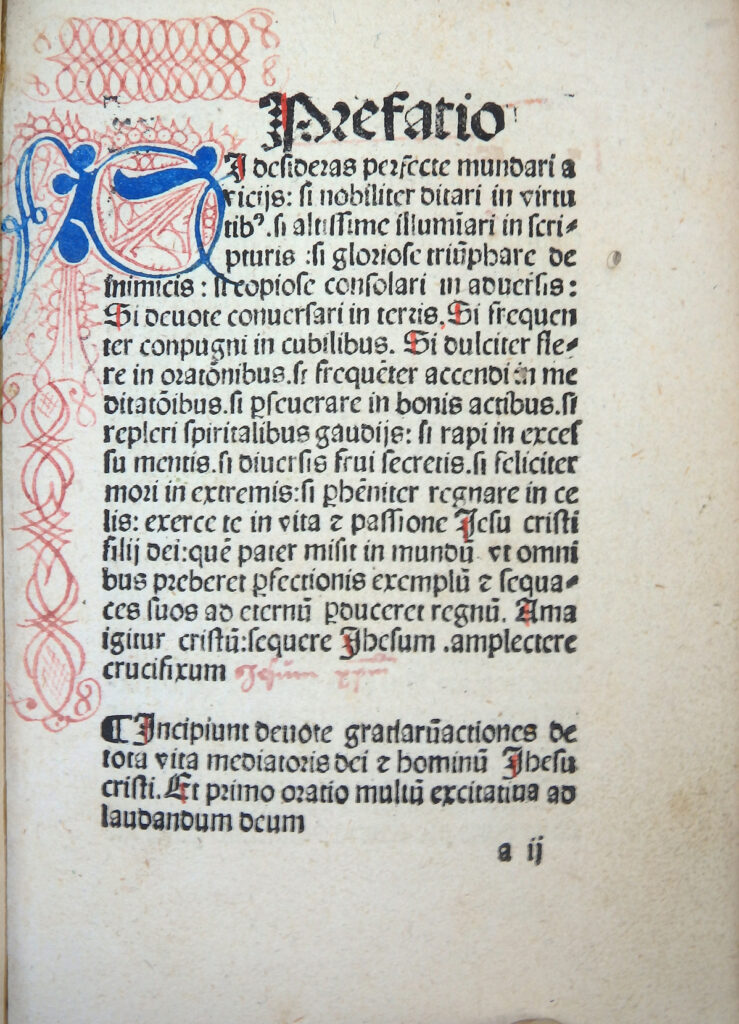 Prefatio
SI desideras perfecte mundari a
vicijs: si nobiliter ditari in virtu
tibꝰ. si altissime illumīari in scri⸗
pturis :si gloriose triūphare de
inimicis : si copiose consolari in aduersis:
Si deuote conuersari in terris. Si frequen
ter conpugni in cubilibus. Si dulciter fle⸗
re in oratōnibus.si frequēter accendi in me
ditatōibus.si ꝑseuerare in bonis actibus.si
repleri spiritalibus gaudijs: si rapi in exces
su mentis.si diuersis frui secretis.si feliciter
mori in extremis:si ꝑhēniter regnare in ce
lis: exerce te in vita ⁊ passione Jesu cristi
filij dei:quē pater misit in mundū vt omni
bus preberet ꝑfectionis exemplū ⁊ sequa⸗
ces suos ad eternū ꝑduceret regnū. Ama
igitur cristū:sequere Jhesum .amplectere
crucifixum Jhesum xpm
¶ Incipiunt deuote gratiarūactiones de
tota vita mediatoris dei ⁊ hominū Jhesu
cristi. Et primo oratio multū excitatiua ad
laudandum deum
a ij